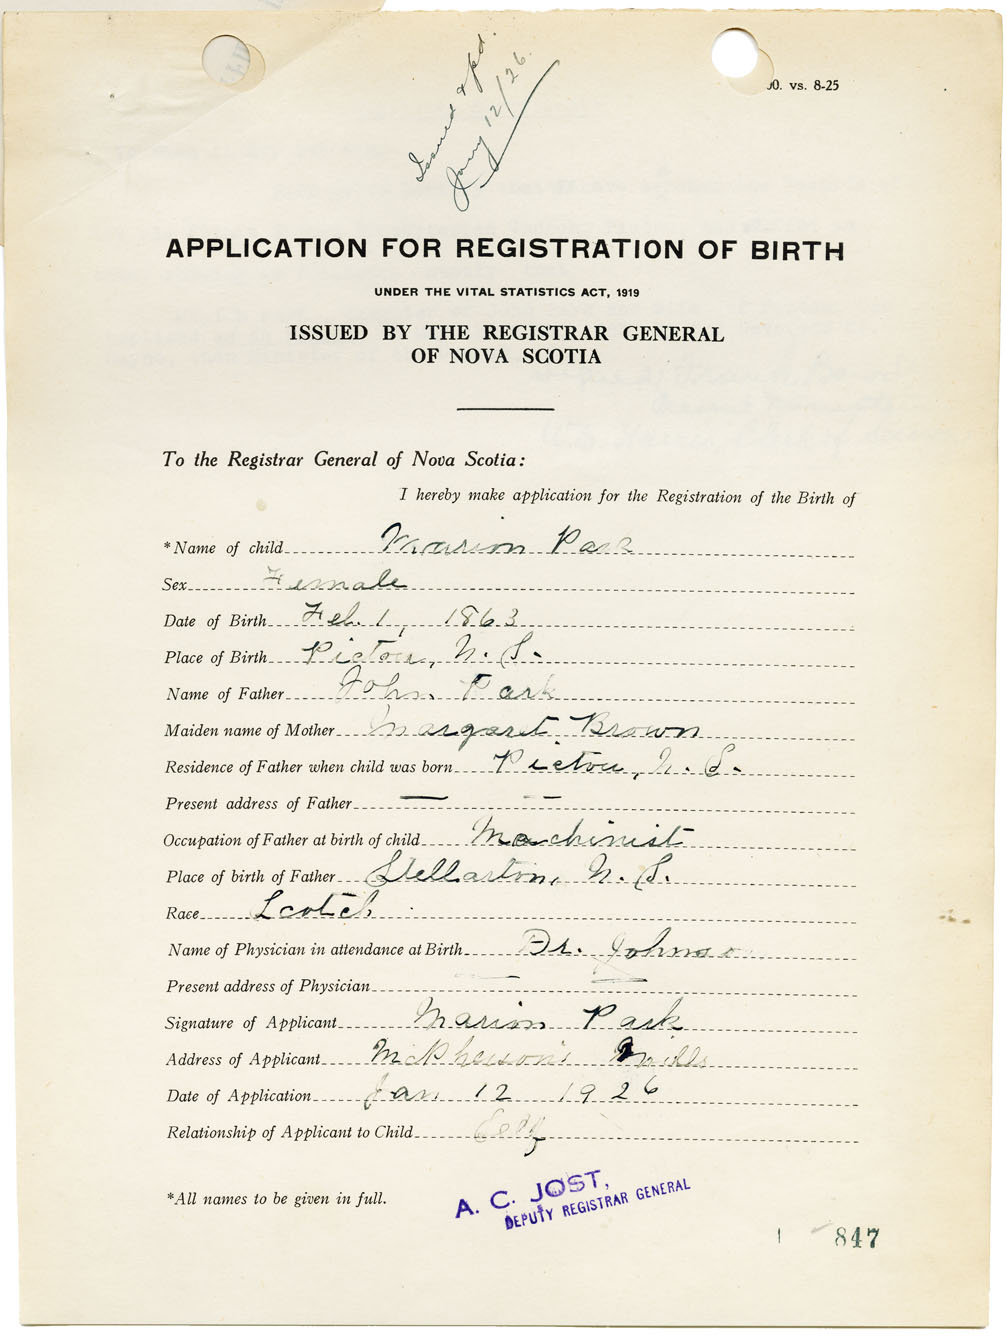 Issued & pd.
Jany 12/26.
00. vs. 8-25
APPLICATION FOR REGISTRATION OF BIRTH
UNDER THE VITAL STATISTICS ACT, 1919
ISSUED BY THE REGISTRAR GENERAL
OF NOVA SCOTIA
To the Registrar General of Nova Scotia:
I hereby make application for the Registration of the Birth of
*Name of child Marion Park
Sex Female
Date of Birth Feb. 1, 1863
Place of Birth Pictou, N. S.
Name of Father John Park
Maiden name of Mother Margaret Brown
Residence of Father when child was born Pictou, N. S.
Present address of Father — —
Occupation of Father at birth of child Machinist
Place of birth of Father Stellarton, N. S.
Race Scotch
Name of Physician in attendance at Birth Dr. Johnso
Present address of Physician —
Signature of Applicant Marion Park
Address of Applicant McPherson's Mills
Date of Application Jan 12 1926
Relationship of Applicant to Child Self
*All names to be given in full.
A. C. JOST,
DEPUTY REGISTRAR GENERAL
847